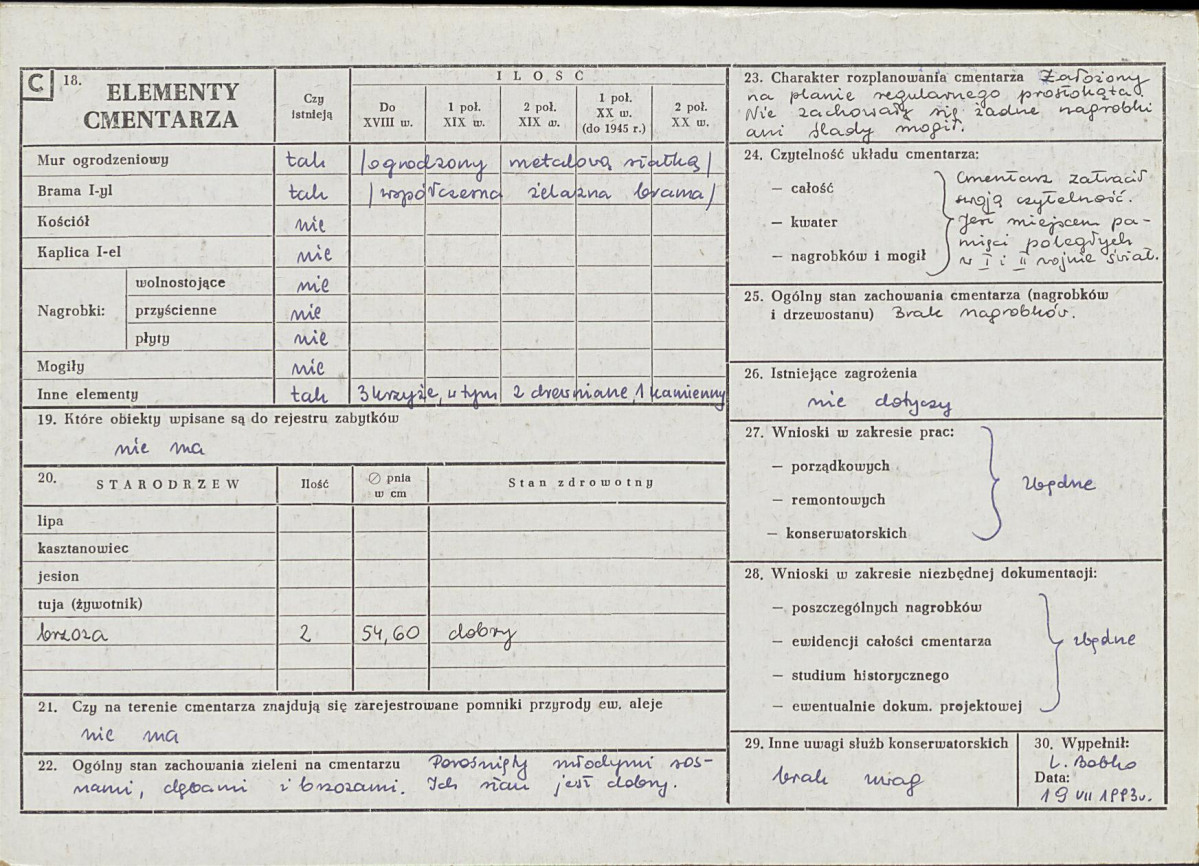 C 18. ELEMENTY CMENTARZA
Czy istnieją
ILOŚĆ
Do XVIII w.
1 poł. XIX w.
2 poł. XIX w.
1 poł. XX w. (do 1945 r.)
2 poł. XX w.
Mur ogrodzeniowy tak /ogrodzony metalową siatką/
Brama I-yl tak /współczesna żelazna brama/
Kościół nie
Kaplica I-el nie
Nagrobki: wolnostojące nie
przyścienne nie
płyty nie
Mogiły nie
Inne elementy tak 3 krzyże, w tym 2 drewniane, 1 kamienny
19. Które obiekty wpisane są do rejestru zabytków
nie ma
20. STARODRZEW Ilość ∅ pnia w cm Stan zdrowotny
lipa
kasztanowiec
jesion
tuja (żywotnik)
brzoza 2 54,60 dobry
21. Czy na terenie cmentarza znajdują się zarejestrowane pomniki przyrody ew. aleje
nie ma
22. Ogólny stan zachowania zieleni na cmentarzu Porośnięty młodymi sos-
nami, dębami i brzozami. Ich stan jest dobry.
23. Charakter rozplanowania cmentarza Założony
na planie regularnego prostokąta.
Nie zachowały się żadne nagrobki
ani ślady mogił.
24. Czytelność układu cmentarza:
— całość
— kwater
— nagrobków i mogił
Cmentarz zatracił
swoją czytelność.
Jest miejscem pa-
mięci poległych
w I i II wojnie świat.
25. Ogólny stan zachowania cmentarza (nagrobków
i drzewostanu) Brak nagrobków.
26. Istniejące zagrożenia
nie dotyczy
27. Wnioski w zakresie prac:
— porządkowych
— remontowych
— konserwatorskich
zbędne
28. Wnioski w zakresie niezbędnej dokumentacji:
— poszczególnych nagrobków
— ewidencji całości cmentarza
— studium historycznego
— ewentualnie dokum. projektowej
zbędne
29. Inne uwagi służb konserwatorskich
brak uwag
30. Wypełnił:
L. Bobko
Data:
19 VII 1993r.